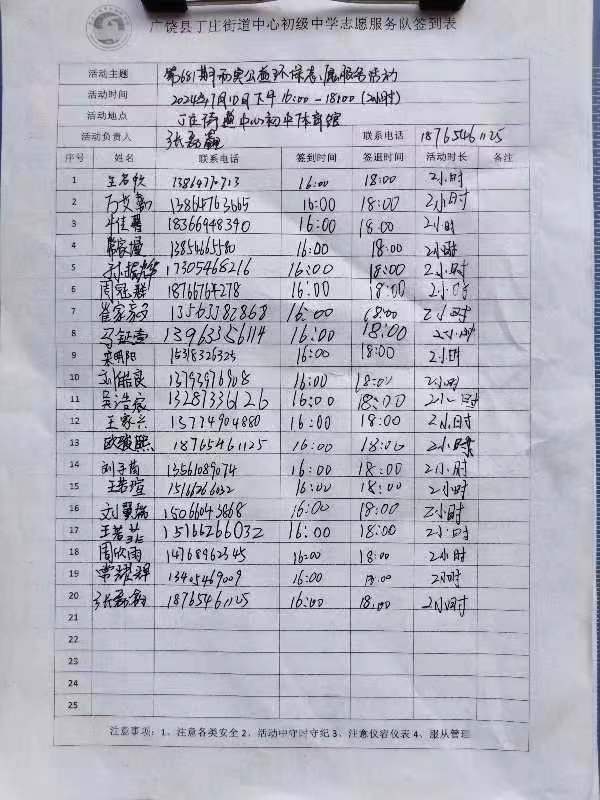 广饶县丁庄街道中心初级中学志愿服务队签到表
活动主题 第681期 公益环保志愿服务活动
活动时间 2024年7月10日下午16:00-18:00(2小时)
活动地点 丁庄街道中心初中体育馆
活动负责人 联系电话 18765461125
序号 姓名 联系电话 签到时间 签退时间 活动时长 备注
1 16:00 18:00 2小时
2 16:00 18:00 2小时
3 18366948390 16:00 18:00 2小时
4 13854665580 16:00 18:00 2小时
5 17305468216 16:00 18:00 2小时
6 周冠群 18766764278 16:00 18:00 2小时
7 崔家豪 13563382868 16:00 18:00 2小时
8 13963356114 16:00 18:00 2小时
9 宋明阳 15318326325 16:00 18:00 2小时
10 刘皓良 13793976908 16:00 18:00 2小时
11 吴浩宸 13287336126 16:00 18:00 2小时
12 王家兴 13774904880 16:00 18:00 2小时
13 欧骏熙 18765461125 16:00 18:00 2小时
14 刘子茵 13561089074 16:00 18:00 2小时
15 王若瑄 15166266032 16:00 18:00 2小时
16 15066043868 16:00 18:00 2小时
17 王若菲 15166266032 16:00 18:00 2小时
18 周欣雨 16:00 18:00 2小时
19 常耀辉 13405469009 16:00 18:00 2小时
20 18765461125 16:00 18:00 2小时
21
22
23
24
25
注意事项：1、注意各类安全 2、活动中守时守纪 3、注意仪容仪表 4、服从管理